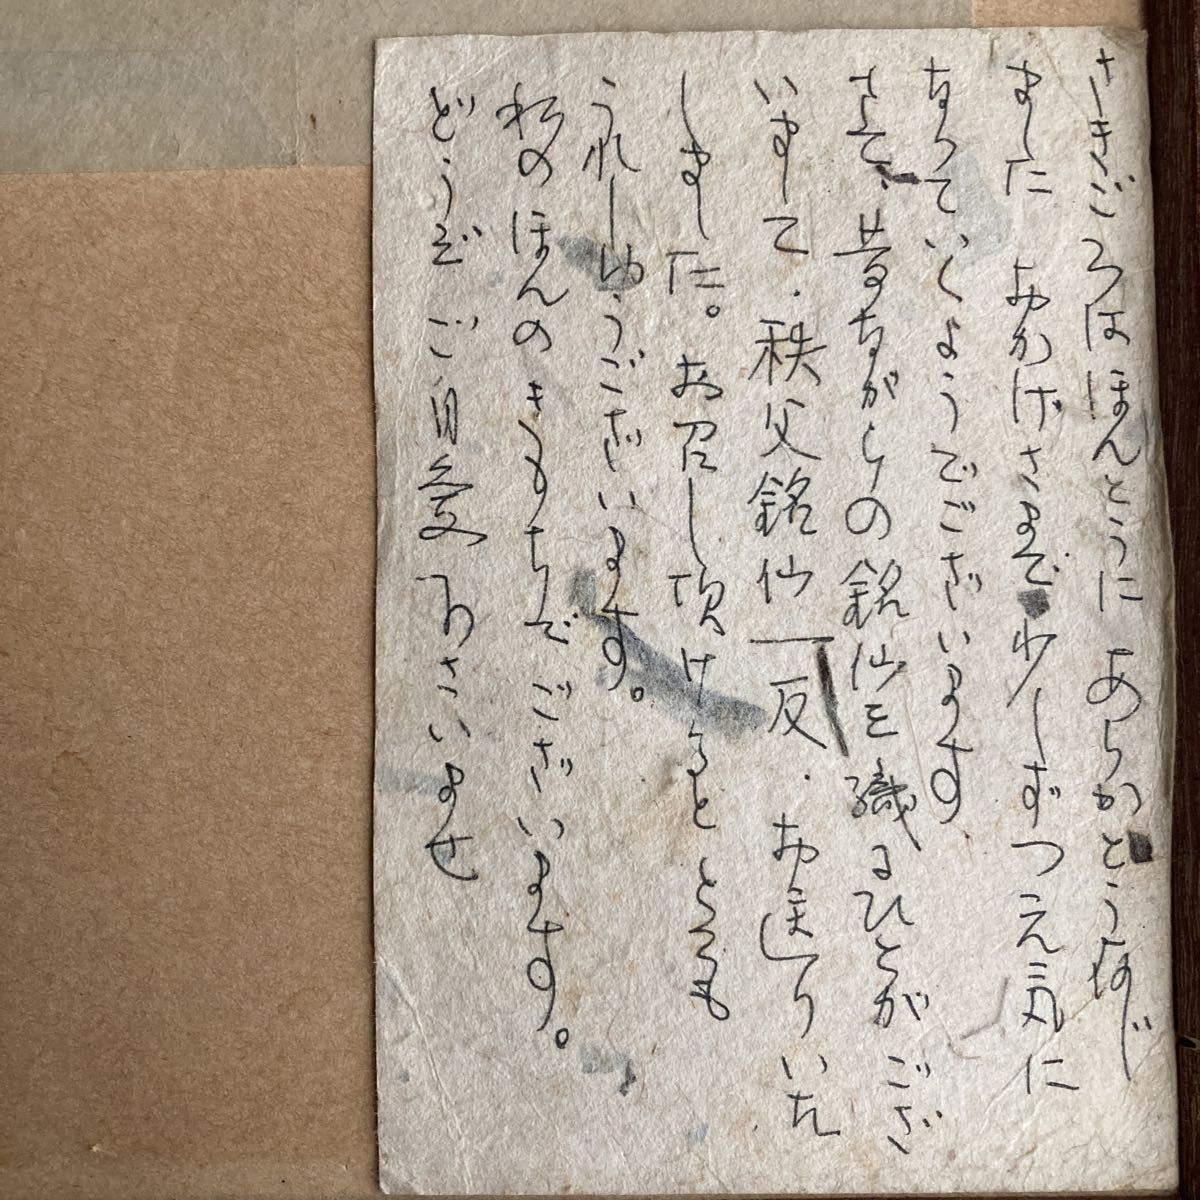 さきごろはほんとうにありがとう存じ
ました おかげさまで少しずつ元気に
なっていくようでございます
さて、昔ながらの銘仙を織るひとがござ
いまして、秩父銘仙一反、お送りいた
しました。お召し頂けるととても
うれしゅうございます。
私のほんのきもちでございます。
どうぞご自愛下さいませ